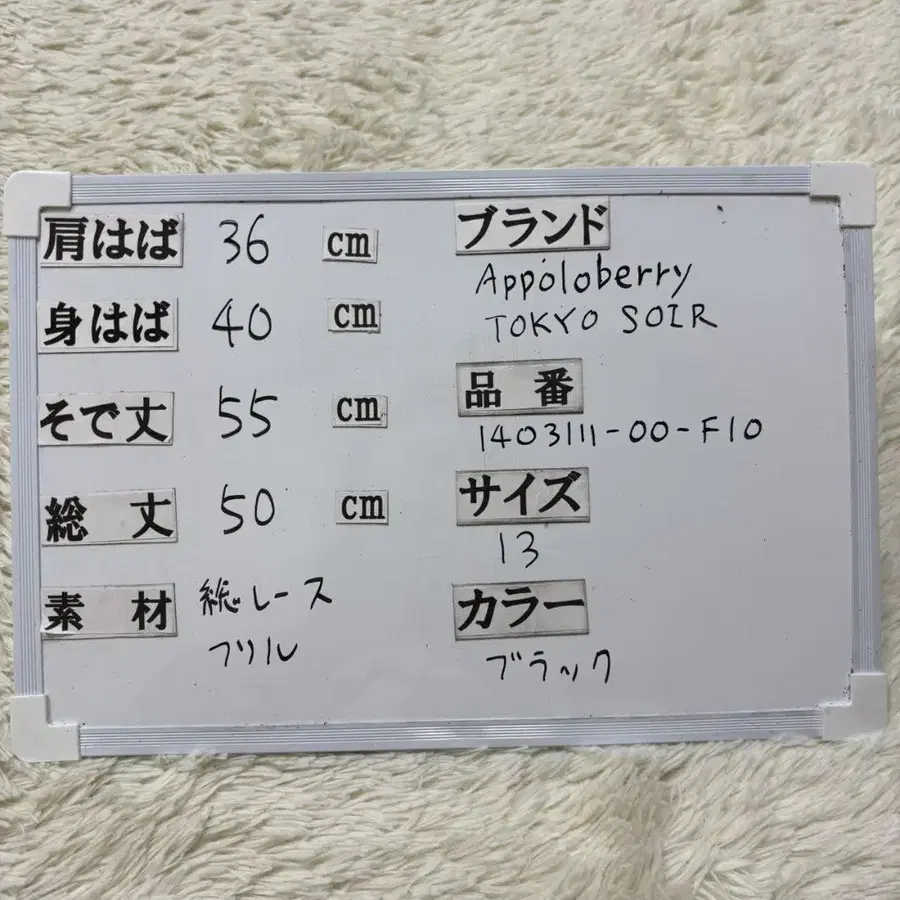 肩はば 36 cm
身はば 40 cm
そで丈 55 cm
総丈 50 cm
素材 総レース
フリル
ブランド
Appoloberry
TOKYO SOIR
品番
1403111-00-F10
サイズ
13
カラー
ブラック